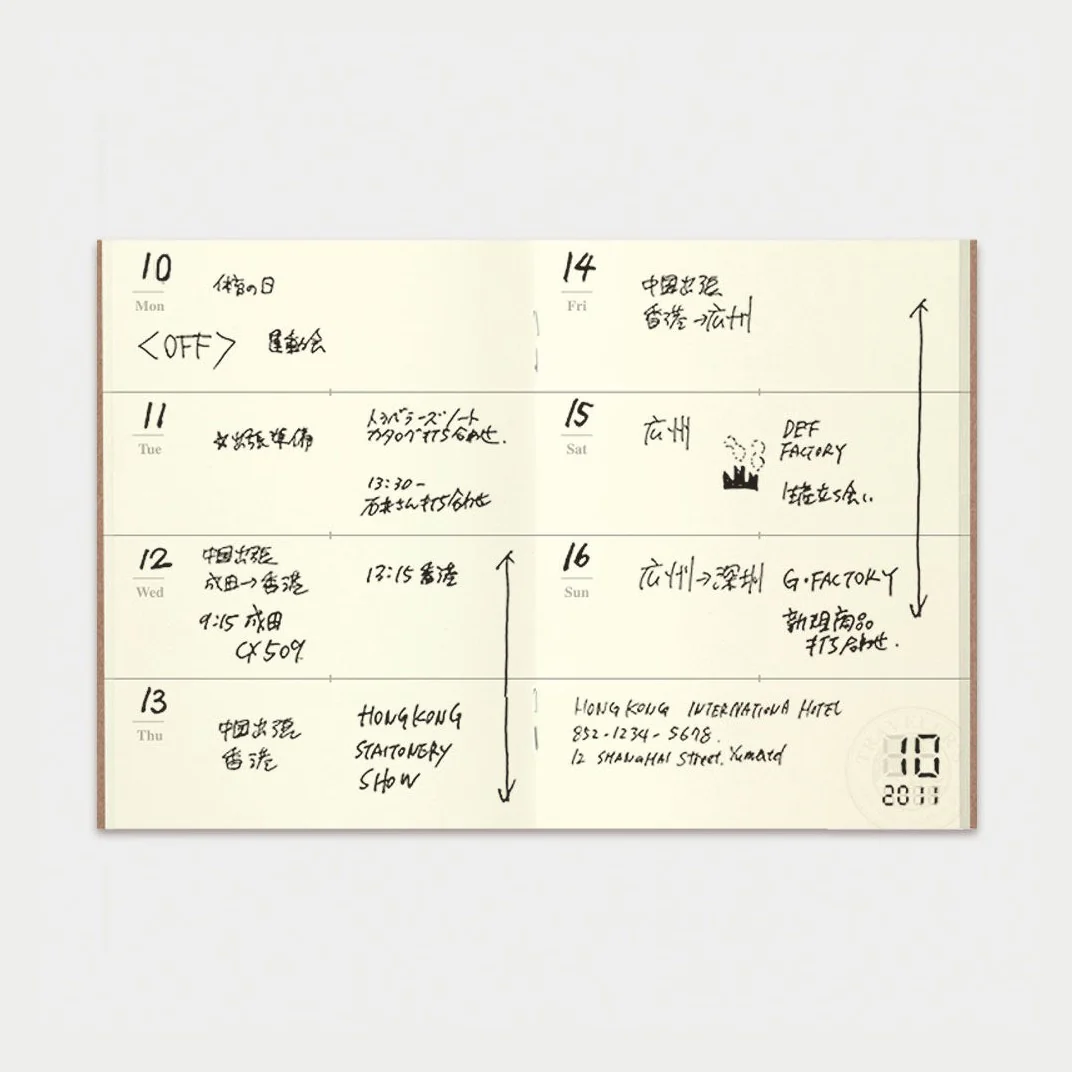 10
Mon
体育の日
<OFF> 運動会
11
Tue
出張準備
トラベラーズノート
カタログ打ち合わせ.
13:30-
さん打ち合わせ
12
Wed
中国出張
成田→香港
9:15 成田
CX509
13:15 香港
13
Thu
中国出張
香港
HONGKONG
STAITONERY
SHOW
14
Fri
中国出張
香港→広州
15
Sat
広州
DEF
FACTORY
生産立ち会い
16
Sun
広州→深圳
G・FACTORY
新規商品
打ち合わせ.
HONG KONG INTERNATIONA HOTEL
852-1234-5678.
12 SHANGHAI Street.
10
2011